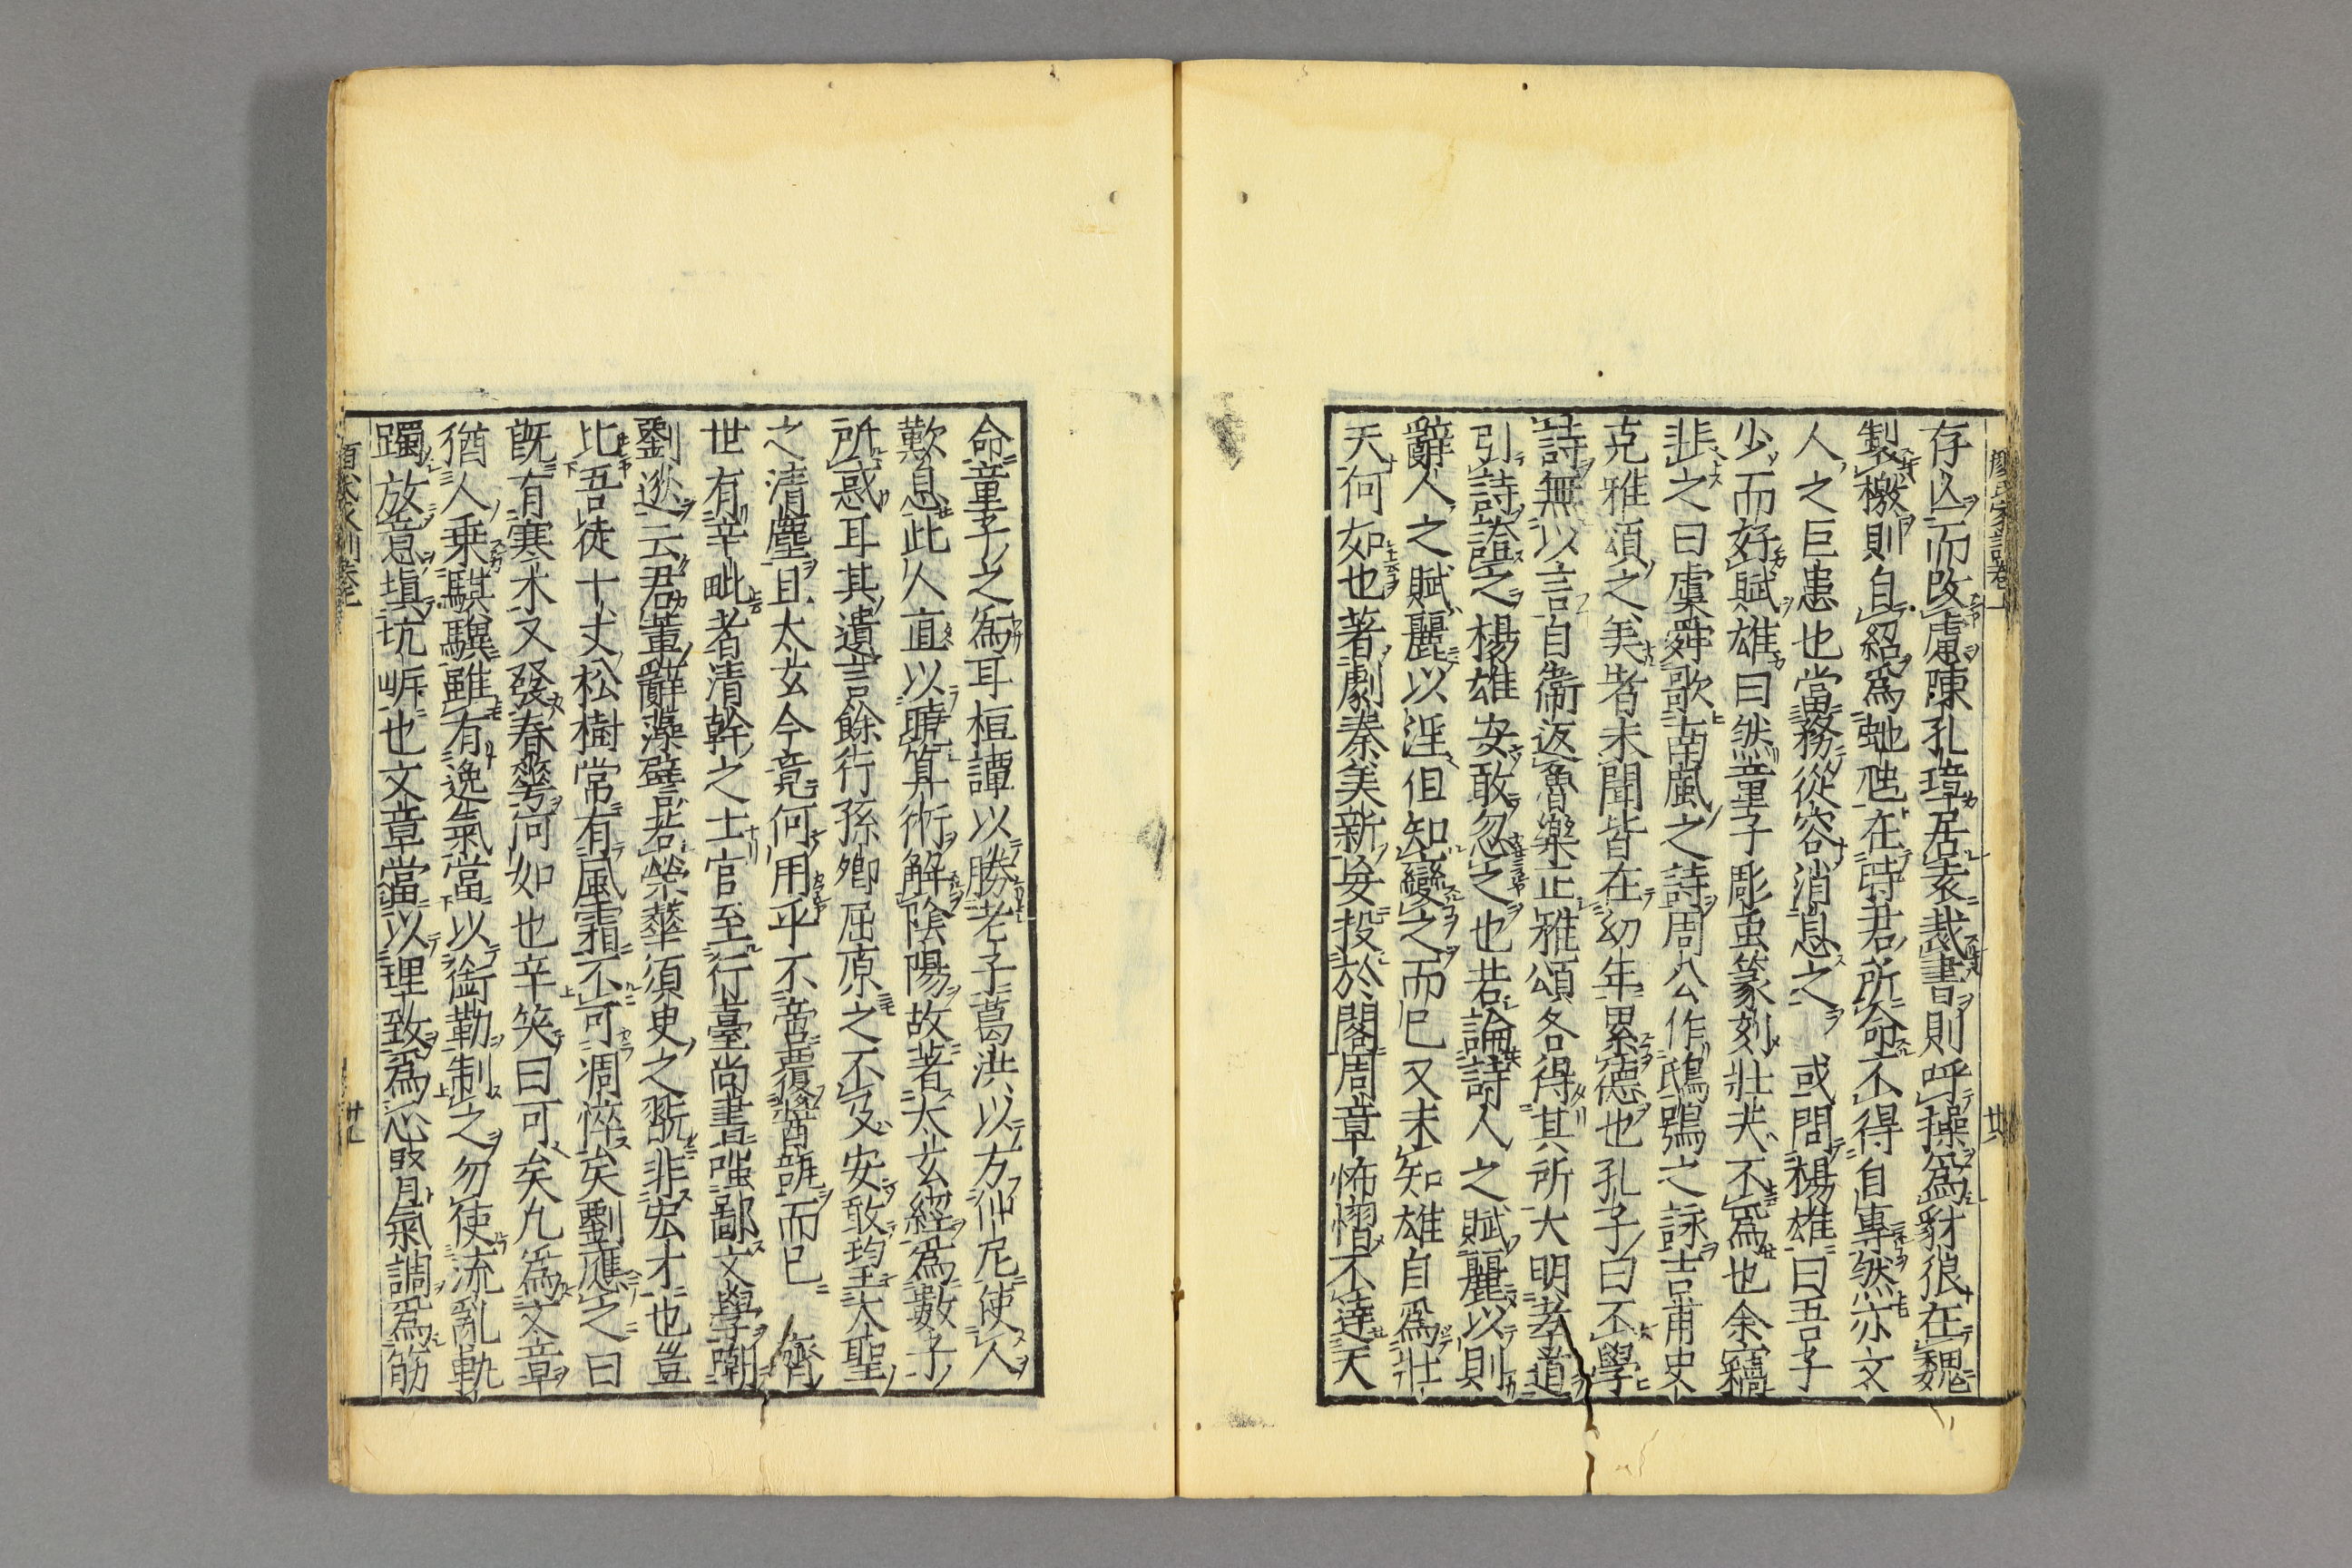 顔氏家訓卷上
廿六
存亾而改慮陳孔璋居袁裁書則呼操爲豺狼在魏
製檄則目紹爲虵虺在時君所命不得自專然亦文
人之巨患也當務從容消息之 或問楊雄曰吾子
少而好賦雄曰然童子彫虫篆刻壯夫不爲也余竊
非之曰虞舜歌南風之詩周公作鴟鴞之詠吉甫史
克雅頌之美者未聞皆在幼年累德也孔子曰不學
詩無以言自衞返魯樂正雅頌各得其所大明孝道
引詩證之楊雄安敢忽之也若論詩人之賦麗以則
辭人之賦麗以淫但知變之而已又未知雄自爲壯
夫何如也著劇秦美新妄投於閣周章怖慴不達天
命童子之爲耳桓譚以勝老子葛洪以方仲尼使人
歎息此人直以曉筭術解陰陽故著太玄經爲數子
所惑耳其遺言餘行孫卿屈原之不及安敢望大聖
之清塵且太玄今竟何用乎不啻覆醬瓿而已 齊
世有辛毗者清幹之士官至行臺尚書嗤鄙文學嘲
劉逖云君輩辭藻譬若榮華須臾之翫非宏才也豈
比吾徒十丈松樹常有風霜不可凋悴矣劉應之曰
既有寒木又發春華何如也辛笑曰可矣凡爲文章
猶人乗騏驥雖有逸氣當以銜勒制之勿使流亂軌
躅放意塡坑岸也文章當以理致爲心腎氣調爲筋
廿七